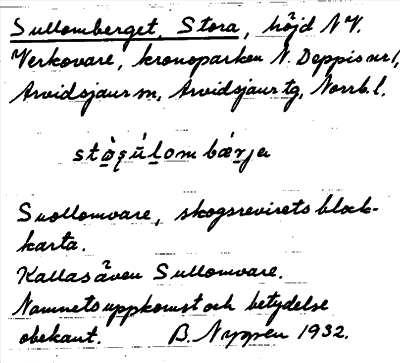 Sullomberget, Stora, höjd N.V.
Verkovare, kronoparken N. Deppis nr 1,
Arvidsjaur sn, Arvidsjaur tg, Norrb. l.
Suollomvare, skogsrevirets block-
karta.
Kallas även Sullomvare.
Namnets uppkomst och betydelse
obekant. B. Nyppen 1932.